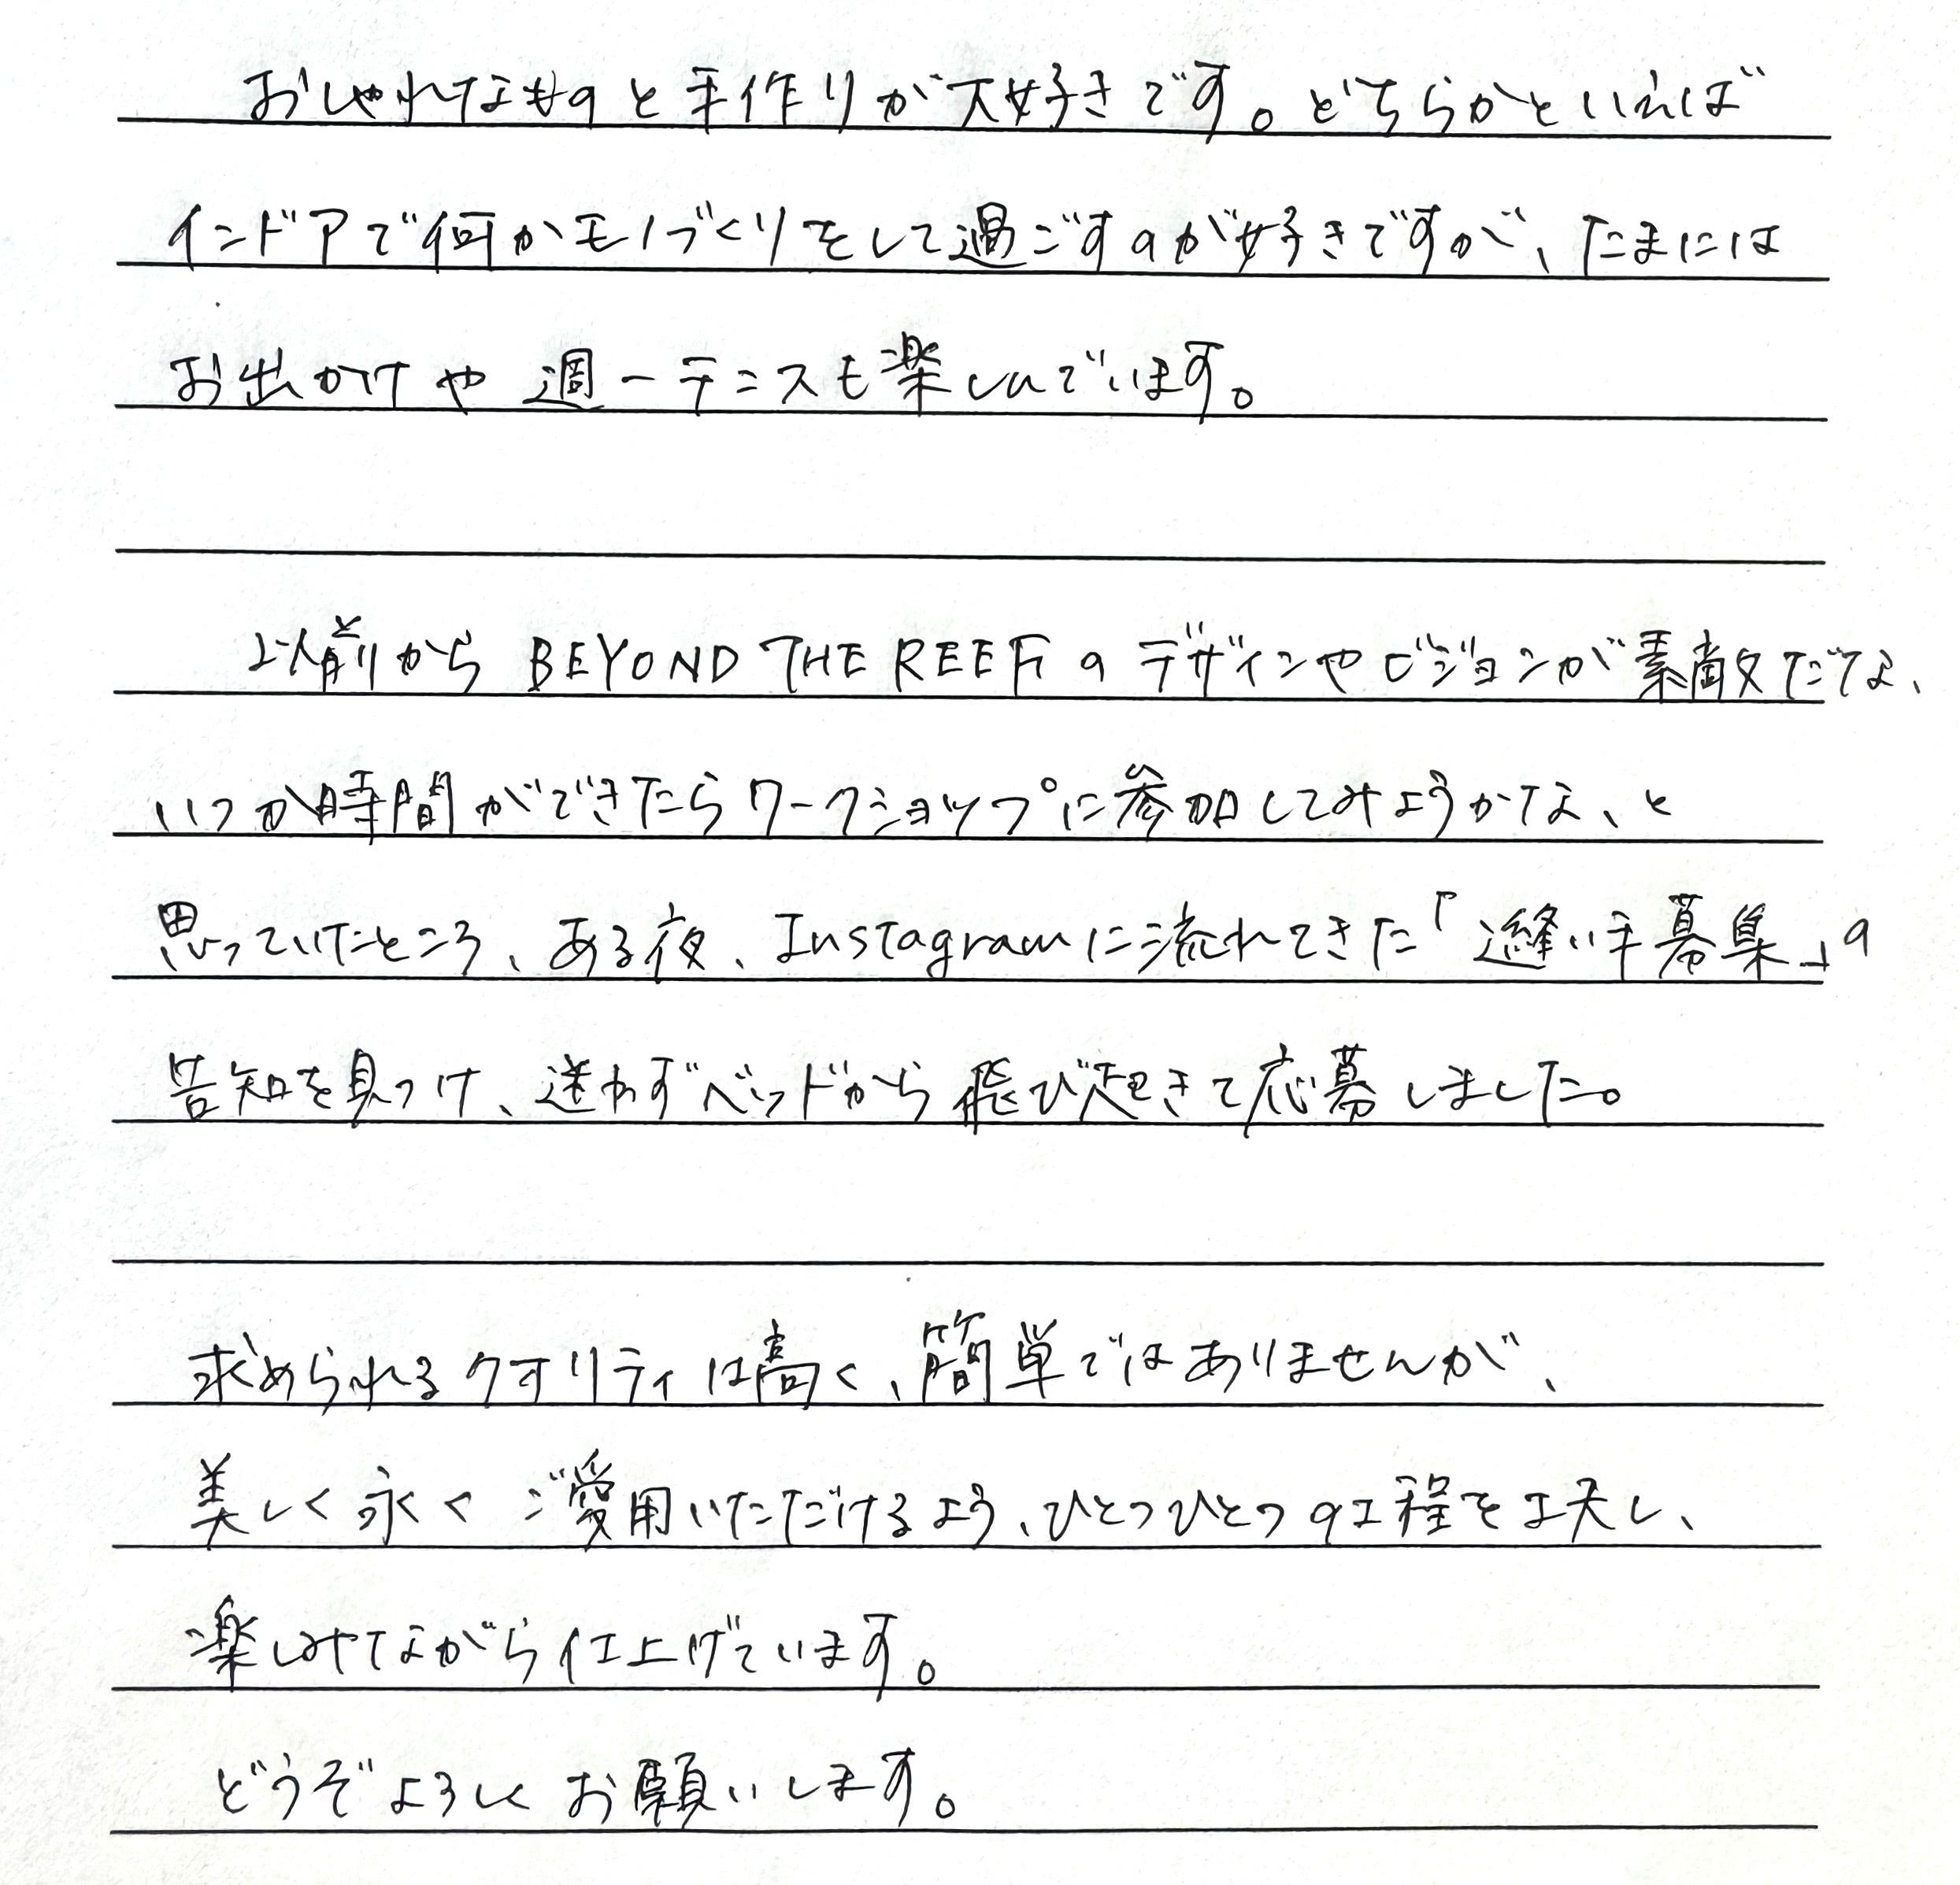 おしゃれなものと手作りが大好きです。どちらかといえば
インドアで何かモノづくりをして過ごすのが好きですが、たまには
お出かけや週一テニスも楽しんでいます。
以前から BEYOND THE REEFのデザインやビジョンが素敵だな、
いつか時間ができたらワークショップに参加してみようかな、と
思っていたところ、ある夜、Instagramに流れてきた「縫い手募集」の
告知を見つけ、迷わずベッドから飛び起きて応募しました。
求められるクオリティは高く、簡単ではありませんが、
美しく永くご愛用いただけるよう、ひとつひとつの工程を工夫し、
楽しみながら仕上げています。
どうぞよろしくお願いします。